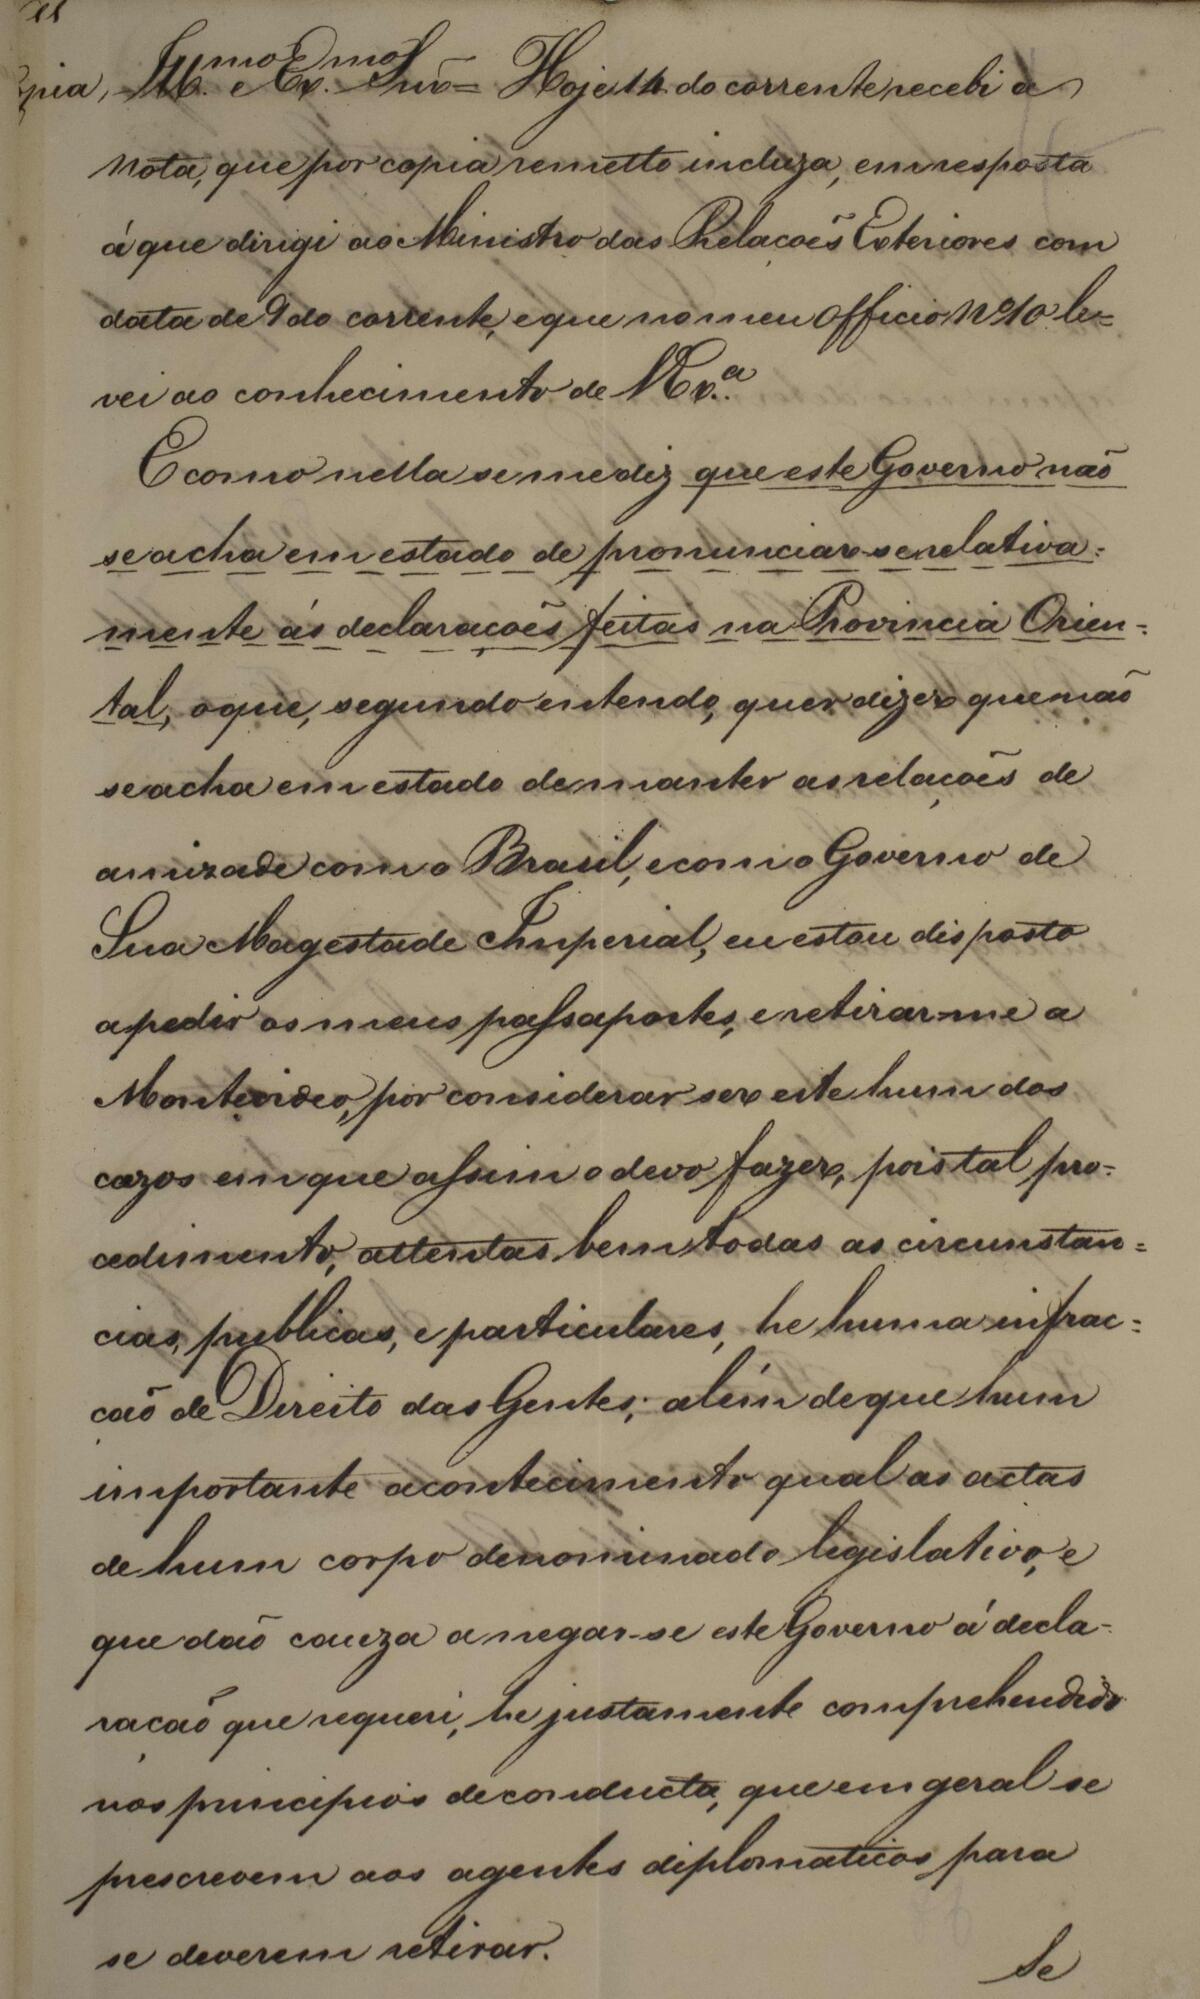 Copia, Ill.mo e Ex.mo Snr = Hoje 14 do corrente recebi a
Nota, que por copia remetto incluza, em resposta
á que dirigi ao Ministro das Relações Exteriores com
data de 9 do corrente, e que no meu Officio Nº 10 le=
vei ao conhecimento de V Ex.ª
E como nella se me diz que este Governo não
se acha em estado de pronunciar-se relativa=
mente ás declarações feitas na Provincia Orien=
tal, o que, segundo entendo, quer dizer que não
se acha em estado de manter as relações de
amizade com o Brasil, e com o Governo de
Sua Magestade Imperial, eu estou disposto
a pedir os meus passaportes, e retirar-me a
Montevideo, por considerar ser este hum dos
cazos em que assim o devo fazer, pois tal pro=
cedimento, attentas bem todas as circunstan=
cias, publicas, e particulares, he huma infrac=
ção de Direito das Gentes; além de que hum
importante acontecimento qual as actas
de hum corpo denominado legislativo, e
que dão cauza a negar-se este Governo á decla-
ração que requeri, he justamente comprehendido
nos principios de conducta, que em geral se
prescrevem aos agentes diplomaticos para
se deverem retirar.
Se